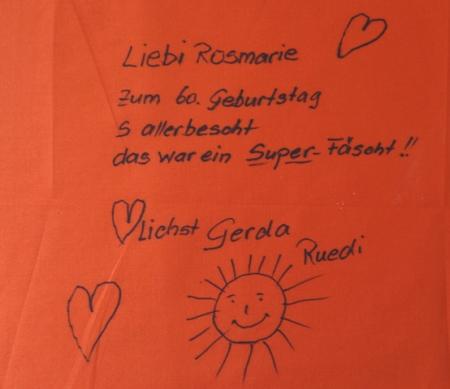 Liebi Rosmarie
Zum 60. Geburtstag
S allerbescht
das war ein Super-Fäscht!!
lichst Gerda
Ruedi